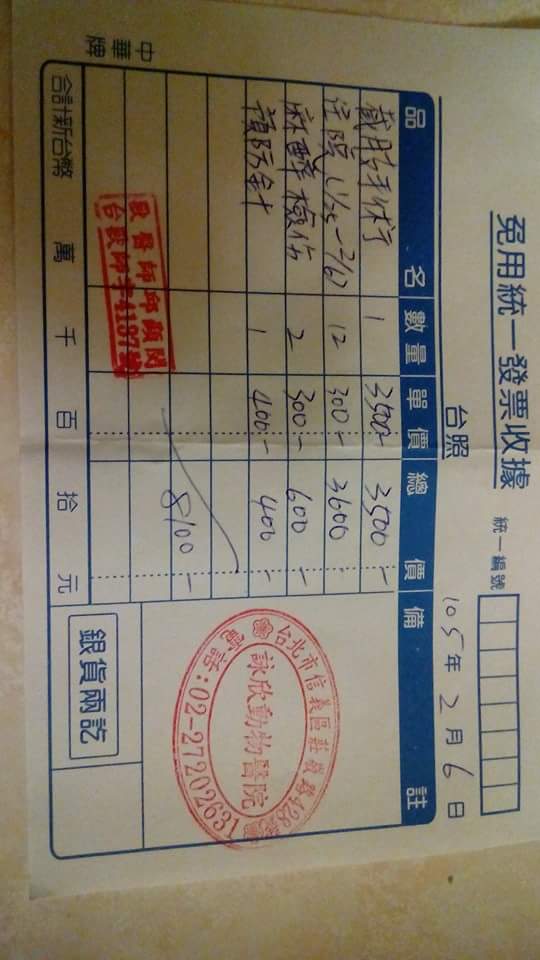 免用統一發票收據
統一編號
台照
105年2月6日
品名 數量 單價 總價 備註
截肢手術 1 3500- 3500-
住院(1/25-2/6) 12 300- 3600-
麻醉檢估 2 300- 600-
預防針 1 400- 400-
8100-
台北市信義區莊敬路428
詠欣動物醫院
電話:02-27202631
獸醫師邱
合計新台幣 萬 千 百 拾 元
銀貨兩訖
中華牌